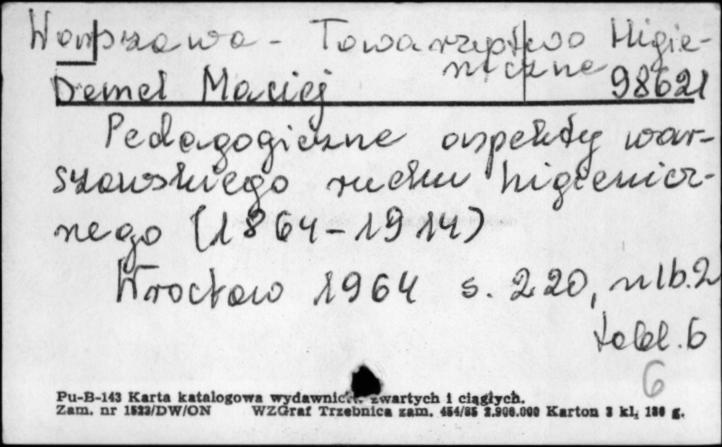 Warszawa - Towarzystwo Higie-
niczne 98621
Demel Maciej
Pedagogiczne aspekty war-
szawskiego ruchu higienicz-
nego (1864-1914)
Wrocław 1964 s. 220, nlb. 2
tabl. 6
6
Pu-B-143 Karta katalogowa wydawnictw zwartych i ciągłych.
Zam. nr 1823/DW/ON WZGraf Trzebnica zam. 454/85 2.906.000 Karton 3 kl, 180 g.